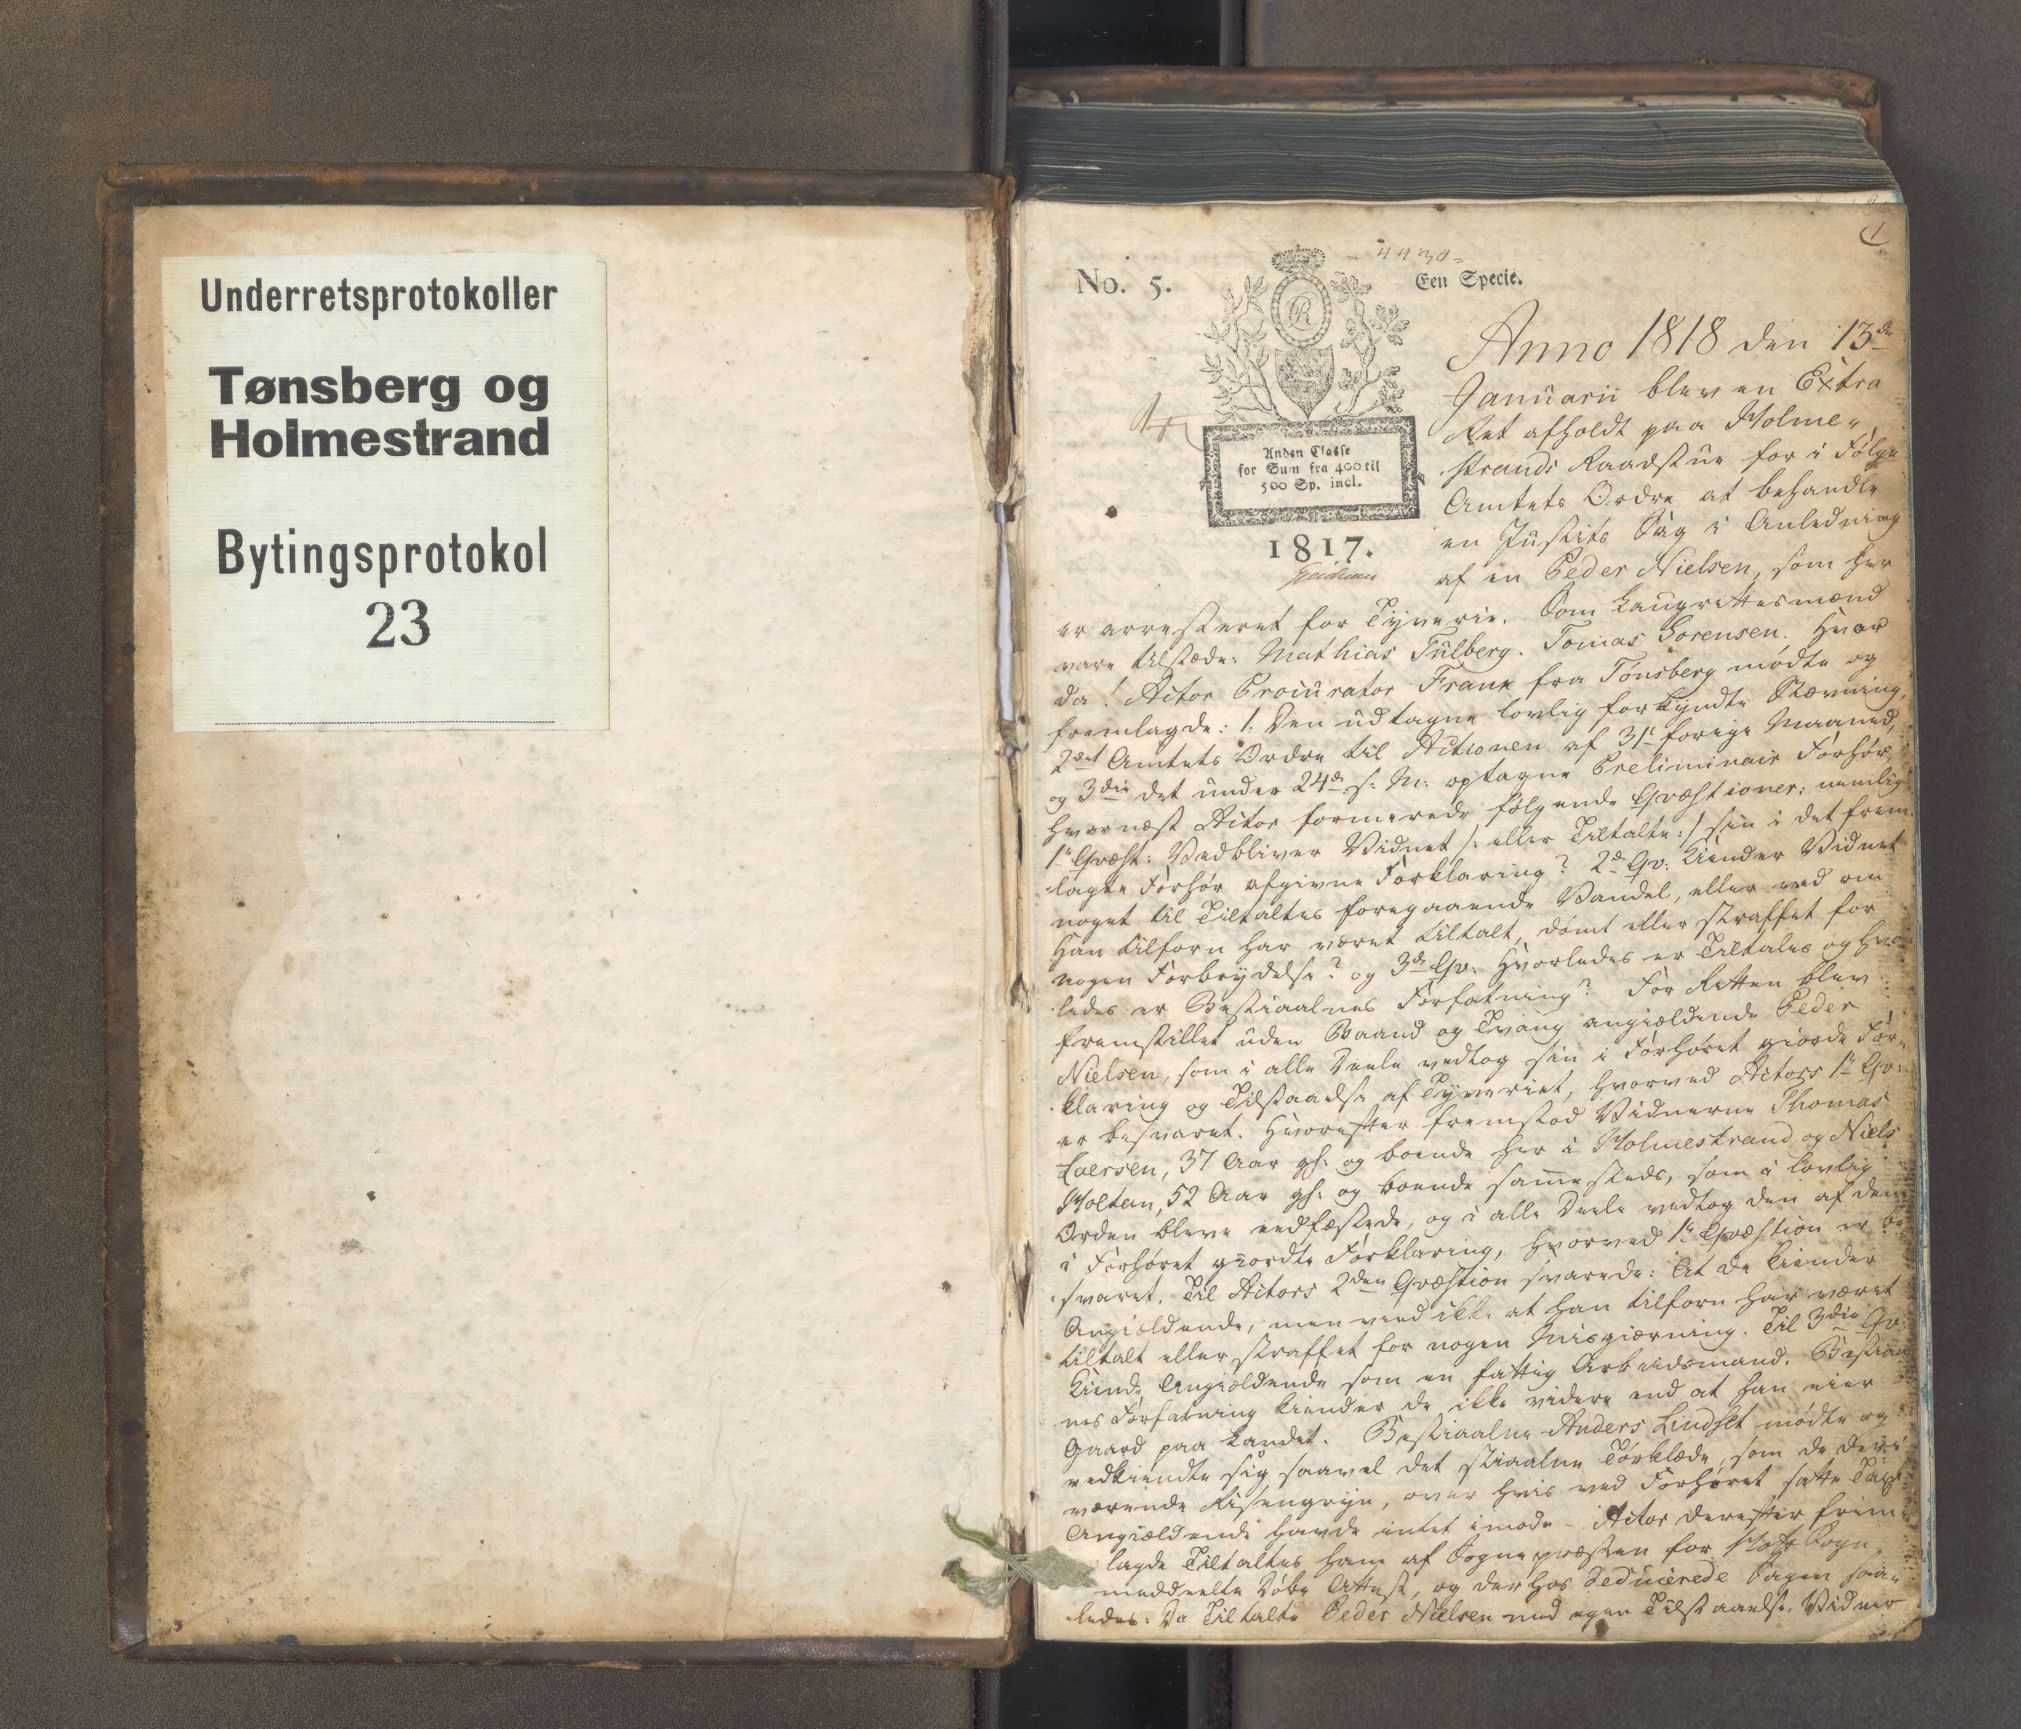 Underretsprotokoller
Tønsberg og
Holmestrand
Bytingsprotokol
23
1
4430
No. 5.
Een Specie.
R
Anden Classe
for Sum fra 400 til
500 Sp. incl.
1817.
Anno 1818 den 13de
Januarii blev en Extra
Ret afholdt paa Holme-
strands Raadstue for i Følge
Amtets Ordre at behandle
en Justits Sag i Anledning
af en Peder Nielsen, som her
er arresteret for Tyverie. Som Laugrettesmænd
vare tilstæde: Mathias Fulberg. Tomas Sorensen. Hvor
da! Actor Procurator Frank fra Tønsberg mødte og
fremlagde: 1. Den udtagne lovlig forkyndte Stævning,
2det Amtets Ordre til Actionen af 31t forrige Maaned,
og 3die det under 24de s: M: optagne Preliminair Forhør,
hvornæst Actor formerede følgende Qvæstioner: nemlig
1te Qvæst: Vedbliver Vidnet /: eller Tiltalte :/ sin i det frem
lagte Forhør afgivne Forklaring? 2de Qv: Kiender Vidnet
noget til Tiltaltes foregaaende Vandel, eller veed om
Han tilforn har været tiltalt, dømt eller straffet for
nogen Forbrydelse? og 3de Qv. Hvorledes er Tiltaltes og hvor
ledes er Bestiaalnes Forfatning? For Retten blev
fremstillet uden Baand og Tvang angiældende Peder
Nielsen, som i alle Deele vedtog sin i Forhøret giorde For-
klaring og Tilstaaelse af Tyveriet, hvorved Actors 1te Qv:
er besvaret. Hvorefter fremstod Vidnerne Thomas
Laersen, 37 Aar gl: og boende her i Holmestrand og Niels
Holtan, 52 Aar gl: og boende sammesteds, som i lovlig
Orden bleve eedfæstede, og i alle Deele vedtog den af dem
i Forhøret giordte Forklaring, hvorved 1te Qvæstion er be
svaret. Til Actors 2den Qvæstion svarede: At de kiender
Angiældende, men veed ikke at han tilforn har været
tiltalt eller straffet for nogen Misgiærning. Til 3die Qv:
Kiende Angiældende som en fattig Arbeidsmand. Bestiaal
nes Forfatning kiender de ikke videre end at han eier
Gaard paa Landet. Bestiaalne Anders Lindset mødte og
vedkiendte sig saavel det stiaalne Tørklæde, som de deri
værende Risengryn, over hvis ved Forhøret satte Taxt
Angiældende havde intet imod. Actor derefter frem
lagde Tiltaltes ham af Sognepræsten for Sogn
meddeelte Døbe Attest, og derhos deducerede Sagen saa-
ledes: Da Tiltalte Peder Nielsen ved egen Tilstaaelse, Vidner